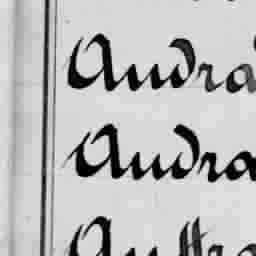 Andra
Andra